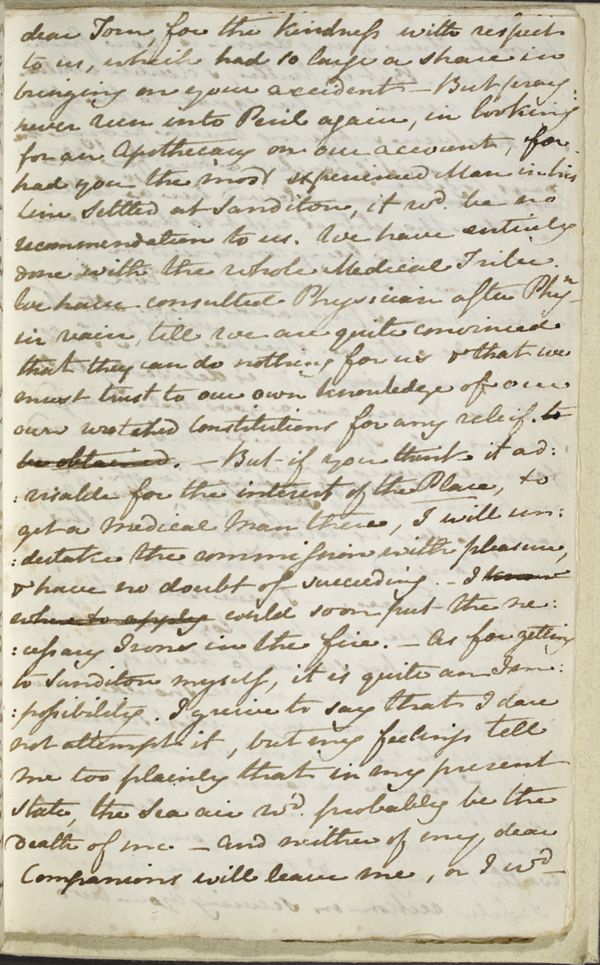 dear Tom, for the kindness with respect
to us, which had so large a share in
bringing on your accident — But pray
never run into Peril again, in looking
for an Apothecary on our account, for
had you the most experienced Man in his
Line settled at Sanditon, it wd. be no
recommendation to us. We have entirely
done with the whole Medical Tribe.
We have consulted Physician after Phyn.
in vain, till we are quite convinced
that they can do nothing for us & that we
must trust to our own knowledge of our
own wretched Constitutions for any releif. to
be obtained. — But if you think it ad:
:visable for the interest of the Place, to
get a Medical Man there, I will un:
:dertake the commission with pleasure,
& have no doubt of succeeding. — I know
where to apply could soon put the ne:
:cessary Irons in the fire. — As for getting
to Sanditon myself, it is quite an Im:
:possibility. I greive to say that I dare
not attempt it, but my feelings tell
me too plainly that in my present
state, the Sea air wd. probably be the
death of me — And neither of my dear
Companions will leave me, or I wd.